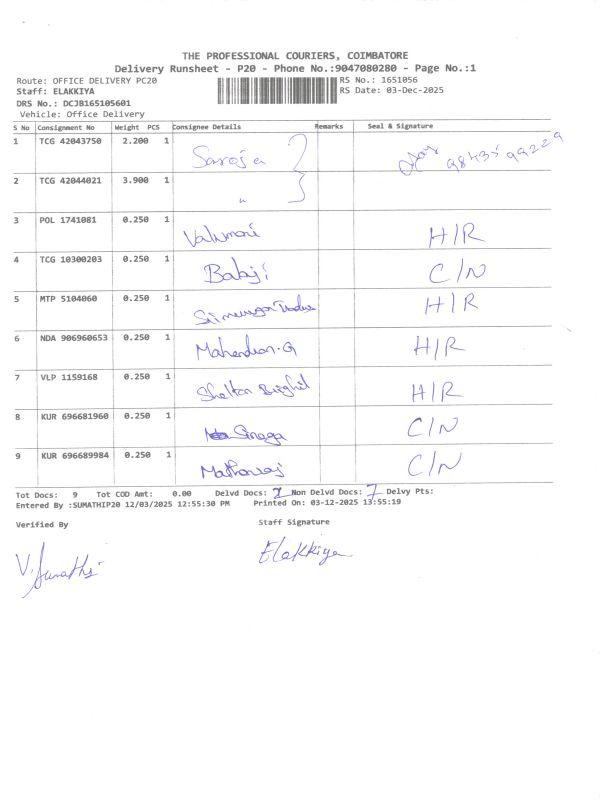 THE PROFESSIONAL COURIERS, COIMBATORE
Delivery Runsheet - P20 - Phone No.:9047080280 - Page No.:1
Route: OFFICE DELIVERY PC20 RS No.: 1651056
Staff: ELAKKIYA RS Date: 03-Dec-2025
DRS No.: DCJB165105601
Vehicle: Office Delivery
S No Consignment No Weight PCS Consignee Details Remarks Seal & Signature
1 TCG 42043750 2.200 1 Saroja 9843599229
2 TCG 42044021 3.900 1 "
3 POL 1741081 0.250 1 Valumani H/R
4 TCG 10300203 0.250 1 Babaji C/N
5 MTP 5104060 0.250 1 H/R
6 NDA 906960653 0.250 1 Mahendran.G H/R
7 VLP 1159168 0.250 1 Shelton H/R
8 KUR 696681960 0.250 1 Sinega C/N
9 KUR 696689984 0.250 1 C/N
Tot Docs: 9 Tot COD Amt: 0.00 Delvd Docs: 2 Non Delvd Docs: 7 Delvy Pts:
Entered By :SUMATHIP20 12/03/2025 12:55:30 PM Printed On: 03-12-2025 13:55:19
Verified By Staff Signature
V. Sumathi Elakkiya